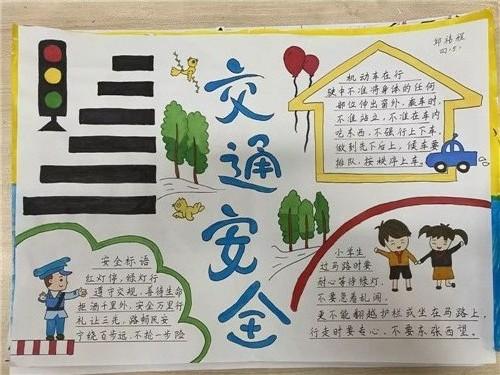 交通安全
四.5.
机动车在行
驶中不准将身体的任何
部位伸出窗外,乘车时,
不准站立,不准在车内
吃东西,不强行上下车,
做到先下后上,候车要
排队,按秩序上车。
安全标语
红灯停,绿灯行
遵守交规,善待生命
拒酒千里外,安全万里行
礼让三先,路畅民安
宁绕百步远,不抢一步险
小学生
过马路时要
耐心等待绿灯,
不要急着乱闯。
更不能翻越护栏或坐在马路上,
行走时要专心,不要东张西望。